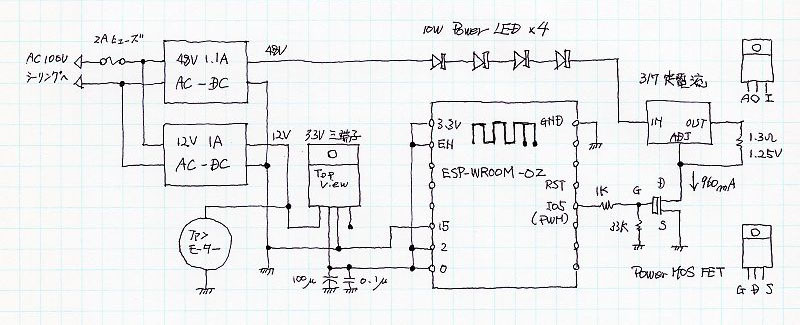 2Aヒューズ
AC100V
シーリングへ
48V 1.1A
AC-DC
48V
10W Power LED ×4
12V 1A
AC-DC
12V
3.3V 三端子
Top
View
ファン
モーター
100μ
0.1μ
3.3V
EN
GND
ESP-WROOM-02
RST
IO5
(PWM)
15
2
0
1K
33K
G
D
S
317 定電流
IN
OUT
ADJ
1.3Ω
1.25V
960mA
A O I
Power MOS FET
G D S